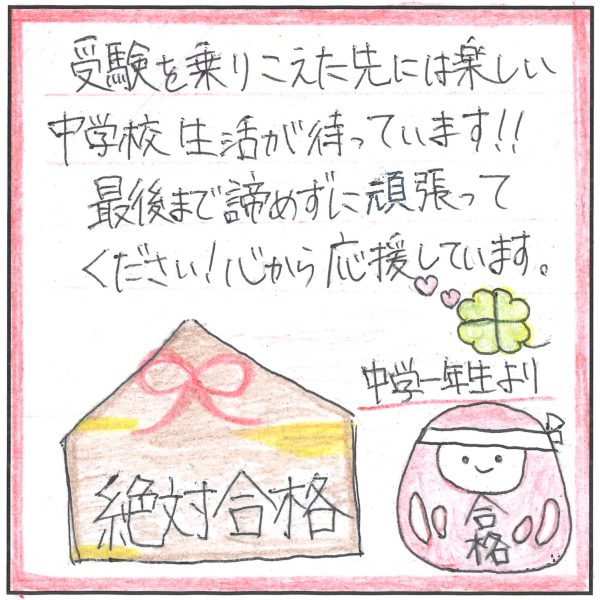 受験を乗りこえた先には楽しい
中学校生活が待っています!!
最後まで諦めずに頑張って
ください!心から応援しています。
中学一年生より
絶対合格
合格